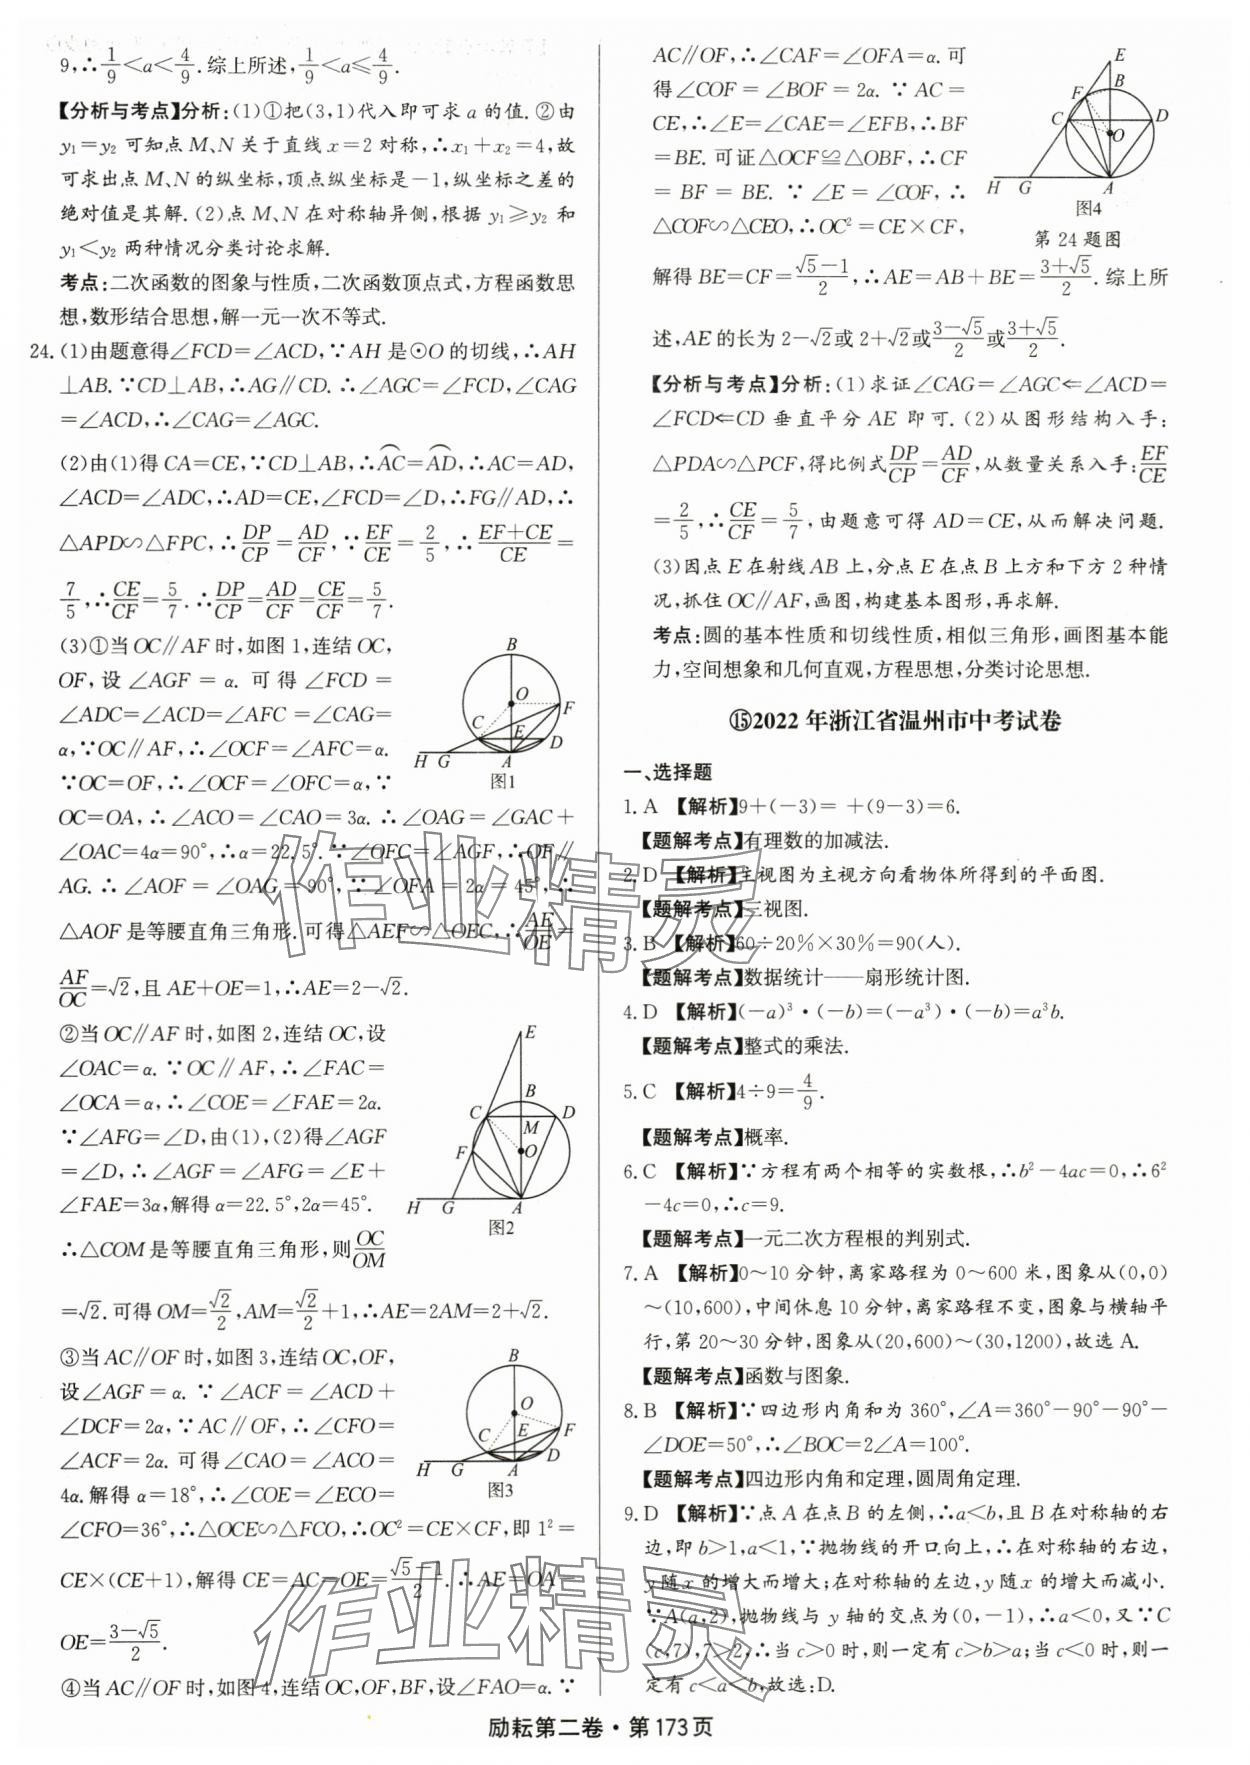 9,∴1/9<a<4/9.综上所述,1/9<a≤4/9.
【分析与考点】分析:(1)①把(3,1)代入即可求 a 的值.②由
y₁=y₂ 可知点 M、N 关于直线 x=2 对称,∴x₁+x₂=4,故
可求出点 M、N 的纵坐标,顶点纵坐标是-1,纵坐标之差的
绝对值是其解.(2)点 M、N 在对称轴异侧,根据 y₁≥y₂ 和
y₁<y₂ 两种情况分类讨论求解.
考点:二次函数的图象与性质,二次函数顶点式,方程函数思
想,数形结合思想,解一元一次不等式.
24.(1)由题意得∠FCD=∠ACD,∵AH 是⊙O 的切线,∴AH
⊥AB.∵CD⊥AB,∴AG∥CD.∴∠AGC=∠FCD,∠CAG
=∠ACD,∴∠CAG=∠AGC.
(2)由(1)得 CA=CE,∵CD⊥AB,∴AC⌒=AD⌒,∴AC=AD,
∠ACD=∠ADC,∴AD=CE,∠FCD=∠D,∴FG∥AD,∴
△APD∽△FPC,∴DP/CP=AD/CF,∵EF/CE=2/5,∴(EF+CE)/CE=
7/5,∴CE/CF=5/7.∴DP/CP=AD/CF=CE/CF=5/7.
(3)①当 OC∥AF 时,如图 1,连结 OC,
OF,设∠AGF=α.可得∠FCD=
∠ADC=∠ACD=∠AFC=∠CAG=
α,∵OC∥AF,∴∠OCF=∠AFC=α.
∵OC=OF,∴∠OCF=∠OFC=α,∵
OC=OA,∴∠ACO=∠CAO=3α.∴∠OAG=∠GAC+
∠OAC=4α=90°,∴α=22.5°.∵∠OFC=∠AGF,∴OF∥
AG.∴∠AOF=∠OAG=90°,∵∠OFA=2α=45°,∴
△AOF 是等腰直角三角形.可得△AEF∽△OEC,∴AE/OE=
AF/OC=√2,且 AE+OE=1,∴AE=2-√2.
B
O
F
C
E
D
H G A
图1
②当 OC∥AF 时,如图 2,连结 OC,设
∠OAC=α.∵OC∥AF,∴∠FAC=
∠OCA=α,∴∠COE=∠FAE=2α.
∵∠AFG=∠D,由(1),(2)得∠AGF
=∠D,∴∠AGF=∠AFG=∠E+
∠FAE=3α,解得 α=22.5°,2α=45°.
∴△COM 是等腰直角三角形,则OC/OM
=√2.可得 OM=√2/2,AM=√2/2+1,∴AE=2AM=2+√2.
E
B
C
D
M
F
O
H G A
图2
③当 AC∥OF 时,如图 3,连结 OC,OF,
设∠AGF=α.∵∠ACF=∠ACD+
∠DCF=2α,∵AC∥OF,∴∠CFO=
∠ACF=2α.可得∠CAO=∠ACO=
4α.解得 α=18°,∴∠COE=∠ECO=
∠CFO=36°,∴△OCE∽△FCO,∴OC²=CE×CF,即 1²=
CE×(CE+1),解得 CE=AC=OE=(√5-1)/2.∴AE=OA-
OE=(3-√5)/2.
B
O
F
C
E
D
H G A
图3
④当 AC∥OF 时,如图 4,连结 OC,OF,BF,设∠FAO=α.∵
AC∥OF,∴∠CAF=∠OFA=α.可
得∠COF=∠BOF=2α.∵AC=
CE,∴∠E=∠CAE=∠EFB,∴BF
=BE.可证△OCF≌△OBF,∴CF
=BF=BE.∵∠E=∠COF,∴
△COF∽△CEO,∴OC²=CE×CF,
E
B
F
C
D
O
H G A
图4
第 24 题图
解得 BE=CF=(√5-1)/2,∴AE=AB+BE=(3+√5)/2.综上所
述,AE 的长为 2-√2或 2+√2或(3-√5)/2或(3+√5)/2.
【分析与考点】分析:(1)求证∠CAG=∠AGC⇐∠ACD=
∠FCD⇐CD 垂直平分 AE 即可.(2)从图形结构入手:
△PDA∽△PCF,得比例式DP/CP=AD/CF,从数量关系入手:EF/CE
=2/5,∴CE/CF=5/7,由题意可得 AD=CE,从而解决问题.
(3)因点 E 在射线 AB 上,分点 E 在点 B 上方和下方 2 种情
况,抓住 OC∥AF,画图,构建基本图形,再求解.
考点:圆的基本性质和切线性质,相似三角形,画图基本能
力,空间想象和几何直观,方程思想,分类讨论思想.
⑮2022 年浙江省温州市中考试卷
一、选择题
1. A 【解析】9+(-3)=+(9-3)=6.
【题解考点】有理数的加减法.
2. D 【解析】主视图为主视方向看物体所得到的平面图.
【题解考点】三视图.
3. B 【解析】60÷20%×30%=90(人).
【题解考点】数据统计——扇形统计图.
4. D 【解析】(-a)³·(-b)=(-a³)·(-b)=a³b.
【题解考点】整式的乘法.
5. C 【解析】4÷9=4/9.
【题解考点】概率.
6. C 【解析】∵方程有两个相等的实数根,∴b²-4ac=0,∴6²
-4c=0,∴c=9.
【题解考点】一元二次方程根的判别式.
7. A 【解析】0~10 分钟,离家路程为 0~600 米,图象从(0,0)
~(10,600),中间休息 10 分钟,离家路程不变,图象与横轴平
行,第 20~30 分钟,图象从(20,600)~(30,1200),故选 A.
【题解考点】函数与图象.
8. B 【解析】∵四边形内角和为 360°,∠A=360°-90°-90°-
∠DOE=50°,∴∠BOC=2∠A=100°.
【题解考点】四边形内角和定理,圆周角定理.
9. D 【解析】∵点 A 在点 B 的左侧,∴a<b,且 B 在对称轴的右
边,即 b>1,a<1,∵抛物线的开口向上,∴在对称轴的右边,
y 随 x 的增大而增大;在对称轴的左边,y 随 x 的增大而减小.
∵A(a,2),抛物线与 y 轴的交点为(0,-1),∴a<0,又∵C
(c,7),7>2,∴当 c>0 时,则一定有 c>b>a;当 c<0 时,则一
定有 c<a<b,故选:D.
作业精灵
作业精灵
励耘第二卷·第 173 页